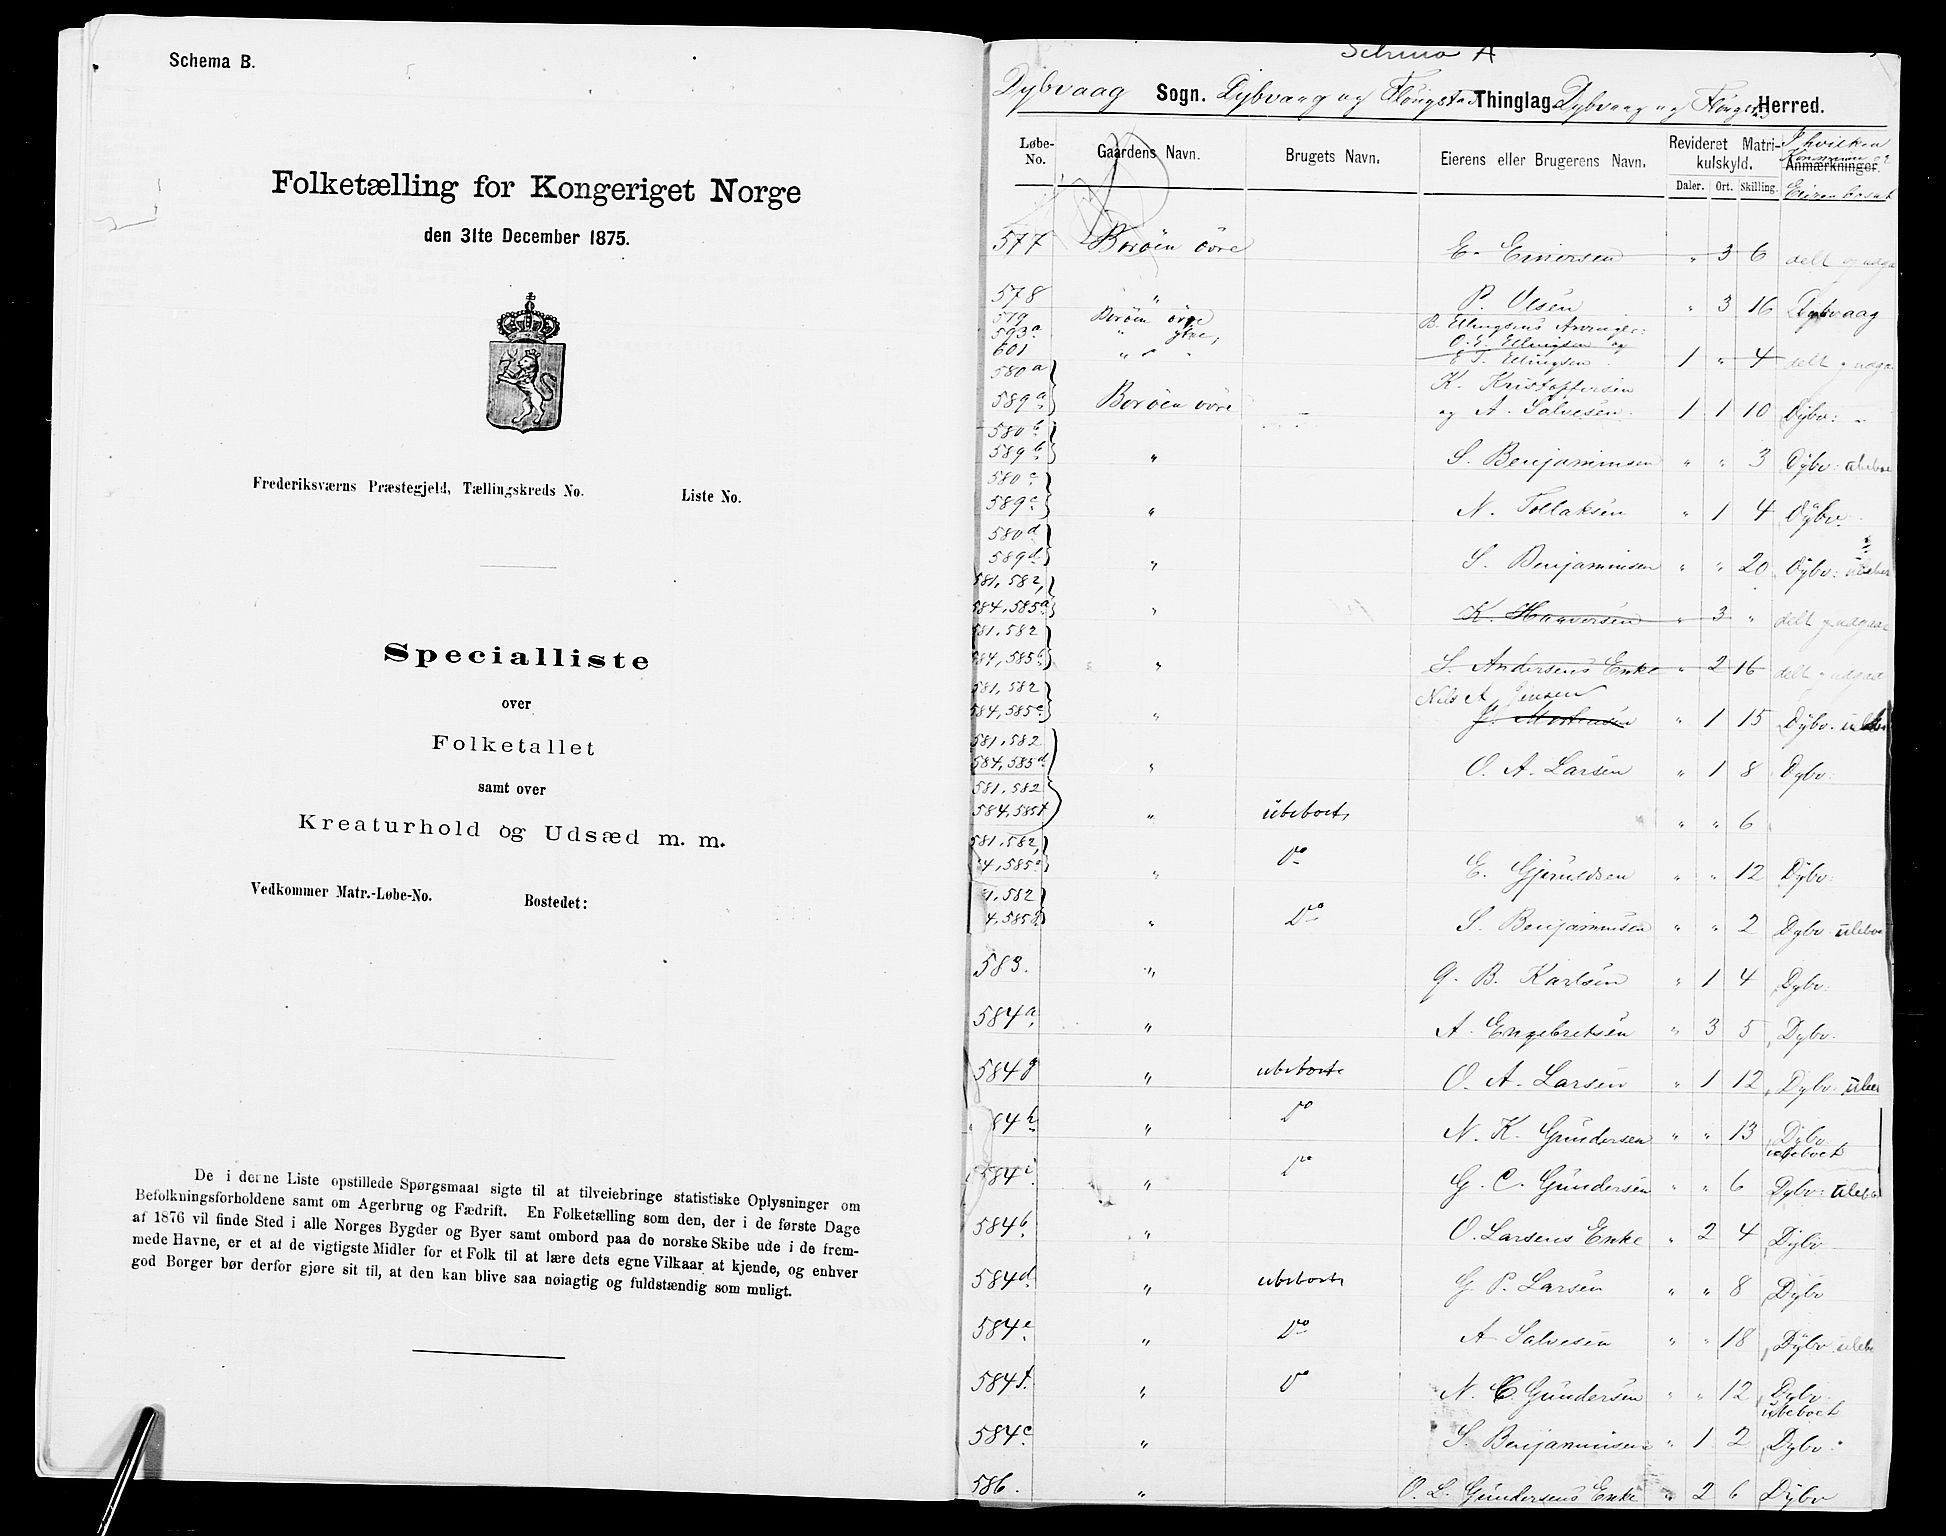 Schema B.
Folketælling for Kongeriget Norge
den 31te December 1875.
Frederiksværns Præstegjeld, Tællingskreds No. Liste No.
Specialliste
over
Folketallet
samt over
Kreaturhold og Udsæd m. m.
Vedkommer Matr.-Løbe-No. Bostedet:
De i denne Liste opstillede Spørgsmaal sigte til at tilveiebringe statistiske Oplysninger om
Befolkningsforholdene samt om Agerbrug og Fædrift. En Folketælling som den, der i de første Dage
af 1876 vil finde Sted i alle Norges Bygder og Byer samt ombord paa de norske Skibe ude i de frem-
mede Havne, er et af de vigtigste Midler for et Folk til at lære dets egne Vilkaar at kjende, og enhver
god Borger bør derfor gjøre sit til, at den kan blive saa nøiagtig og fuldstændig som muligt.
Schema A
Dybvaag Sogn. Dybvaag og Thinglag. Dybvaag og Herred.
Løbe-No. Gaardens Navn. Brugets Navn. Eierens eller Brugerens Navn. Revideret Matrikulskyld. Daler. Ort. Skilling. Anmærkninger. I hvilken Eieren bosat
577 Borøen övre E. Einersen " 3 6 delt og udga
578 " P. Olsen " 3 16 Dybvaag
579 Borøen övre B. Ellingsens Arvinger:
593a " ytre, O. E. Ellingsen og
601 " " " E. T. Ellingsen 1 " 4 delt g udgaa
580a K. Kristoffersen
589a Borøen övre og A. Salvesen. 1 1 10 Dybv:
580b
589b " S. Benjaminsen " " 3 Dybv:
580c
589c " N. Tollaksen " 1 4 Dybv.
580d
589d " S. Benjaminsen " " 20 Dybv:
581, 582,
584, 585a " K. Haaversen " 3 " delt g udgaa
581, 582
584, 585b " L. Andersens Enke " 2 16 delt g udgaa
581, 582 Nils A. Jensen
584, 585c " J. Mortensen " 1 15 Dybv.
581, 582
584, 585d " O. A. Larsen " 1 8 Dybv:
581, 582
584, 585f " ubeboet " " 6
581, 582,
4, 585e " Do E. Gjeruldsen " " 12 Dybv:
1, 582
4, 585g " Do S. Benjaminsen " " 2 Dybv.
583. " G. B. Karlsen " 1 4 Dybv:
584a " A. Engebretsen " 3 5 Dybv.
584g " ubeboet O. A. Larsen " 1 12 Dybv.
84h " Do N. K. Gundersen " " 13 Dybv ubeboet
584i " Do G. C. Gundersen " " 6 Dybv:
584b " O. Larsens Enke " 2 4 Dybv
584d " ubeboet G. P. Larsen " " 8 Dybv
584e " Do A Salvesen " " 18 Dybv
584f. " Do N. C. Gundersen " " 12 Dybv. ubeboet
584c " S. Benjaminsen " 1 2 Dybv.
586. " O. L. Gundersens Enke " 2 6 Dybv